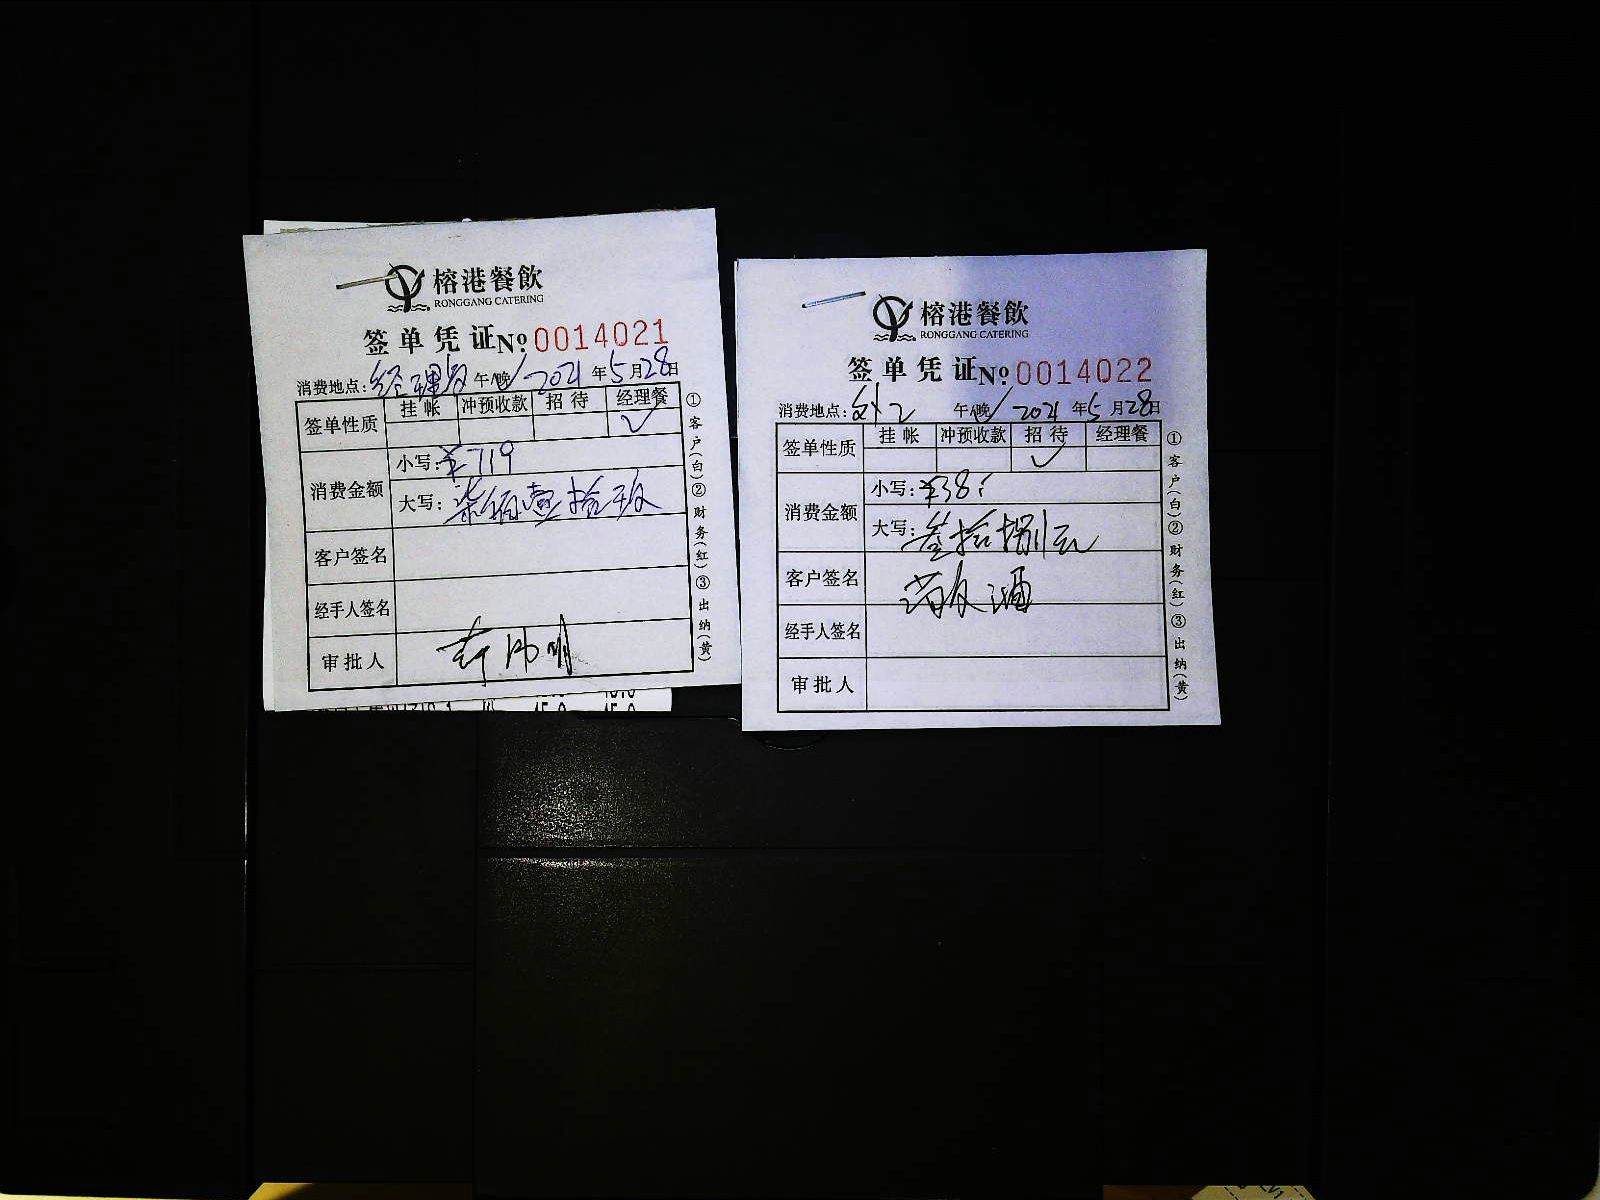 榕港餐飲
RONGGANG CATERING
签单凭证 № 0014021
消费地点：经理 午/晚 2021年5月28日
签单性质 挂帐 冲预收款 招待 经理餐
✓
消费金额 小写：¥719
大写：柒佰壹拾玖
客户签名
经手人签名
审批人
①客户(白)②财务(红)③出纳(黄)
45.0 45.0
榕港餐飲
RONGGANG CATERING
签单凭证 № 0014022
消费地点： 午/晚 2021年5月28日
签单性质 挂帐 冲预收款 招待 经理餐
✓
消费金额 小写：¥38
大写：叁拾捌元
客户签名
经手人签名
审批人
①客户(白)②财务(红)③出纳(黄)